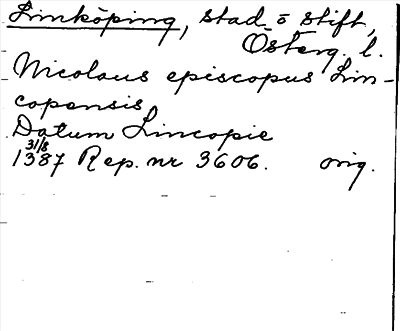 Linköping, stad o stift,
Österg. l.
Nicolaus episcopus Lin-
copensis
Datum Lincopie
31/8
1387 Rep. nr 3606. orig.